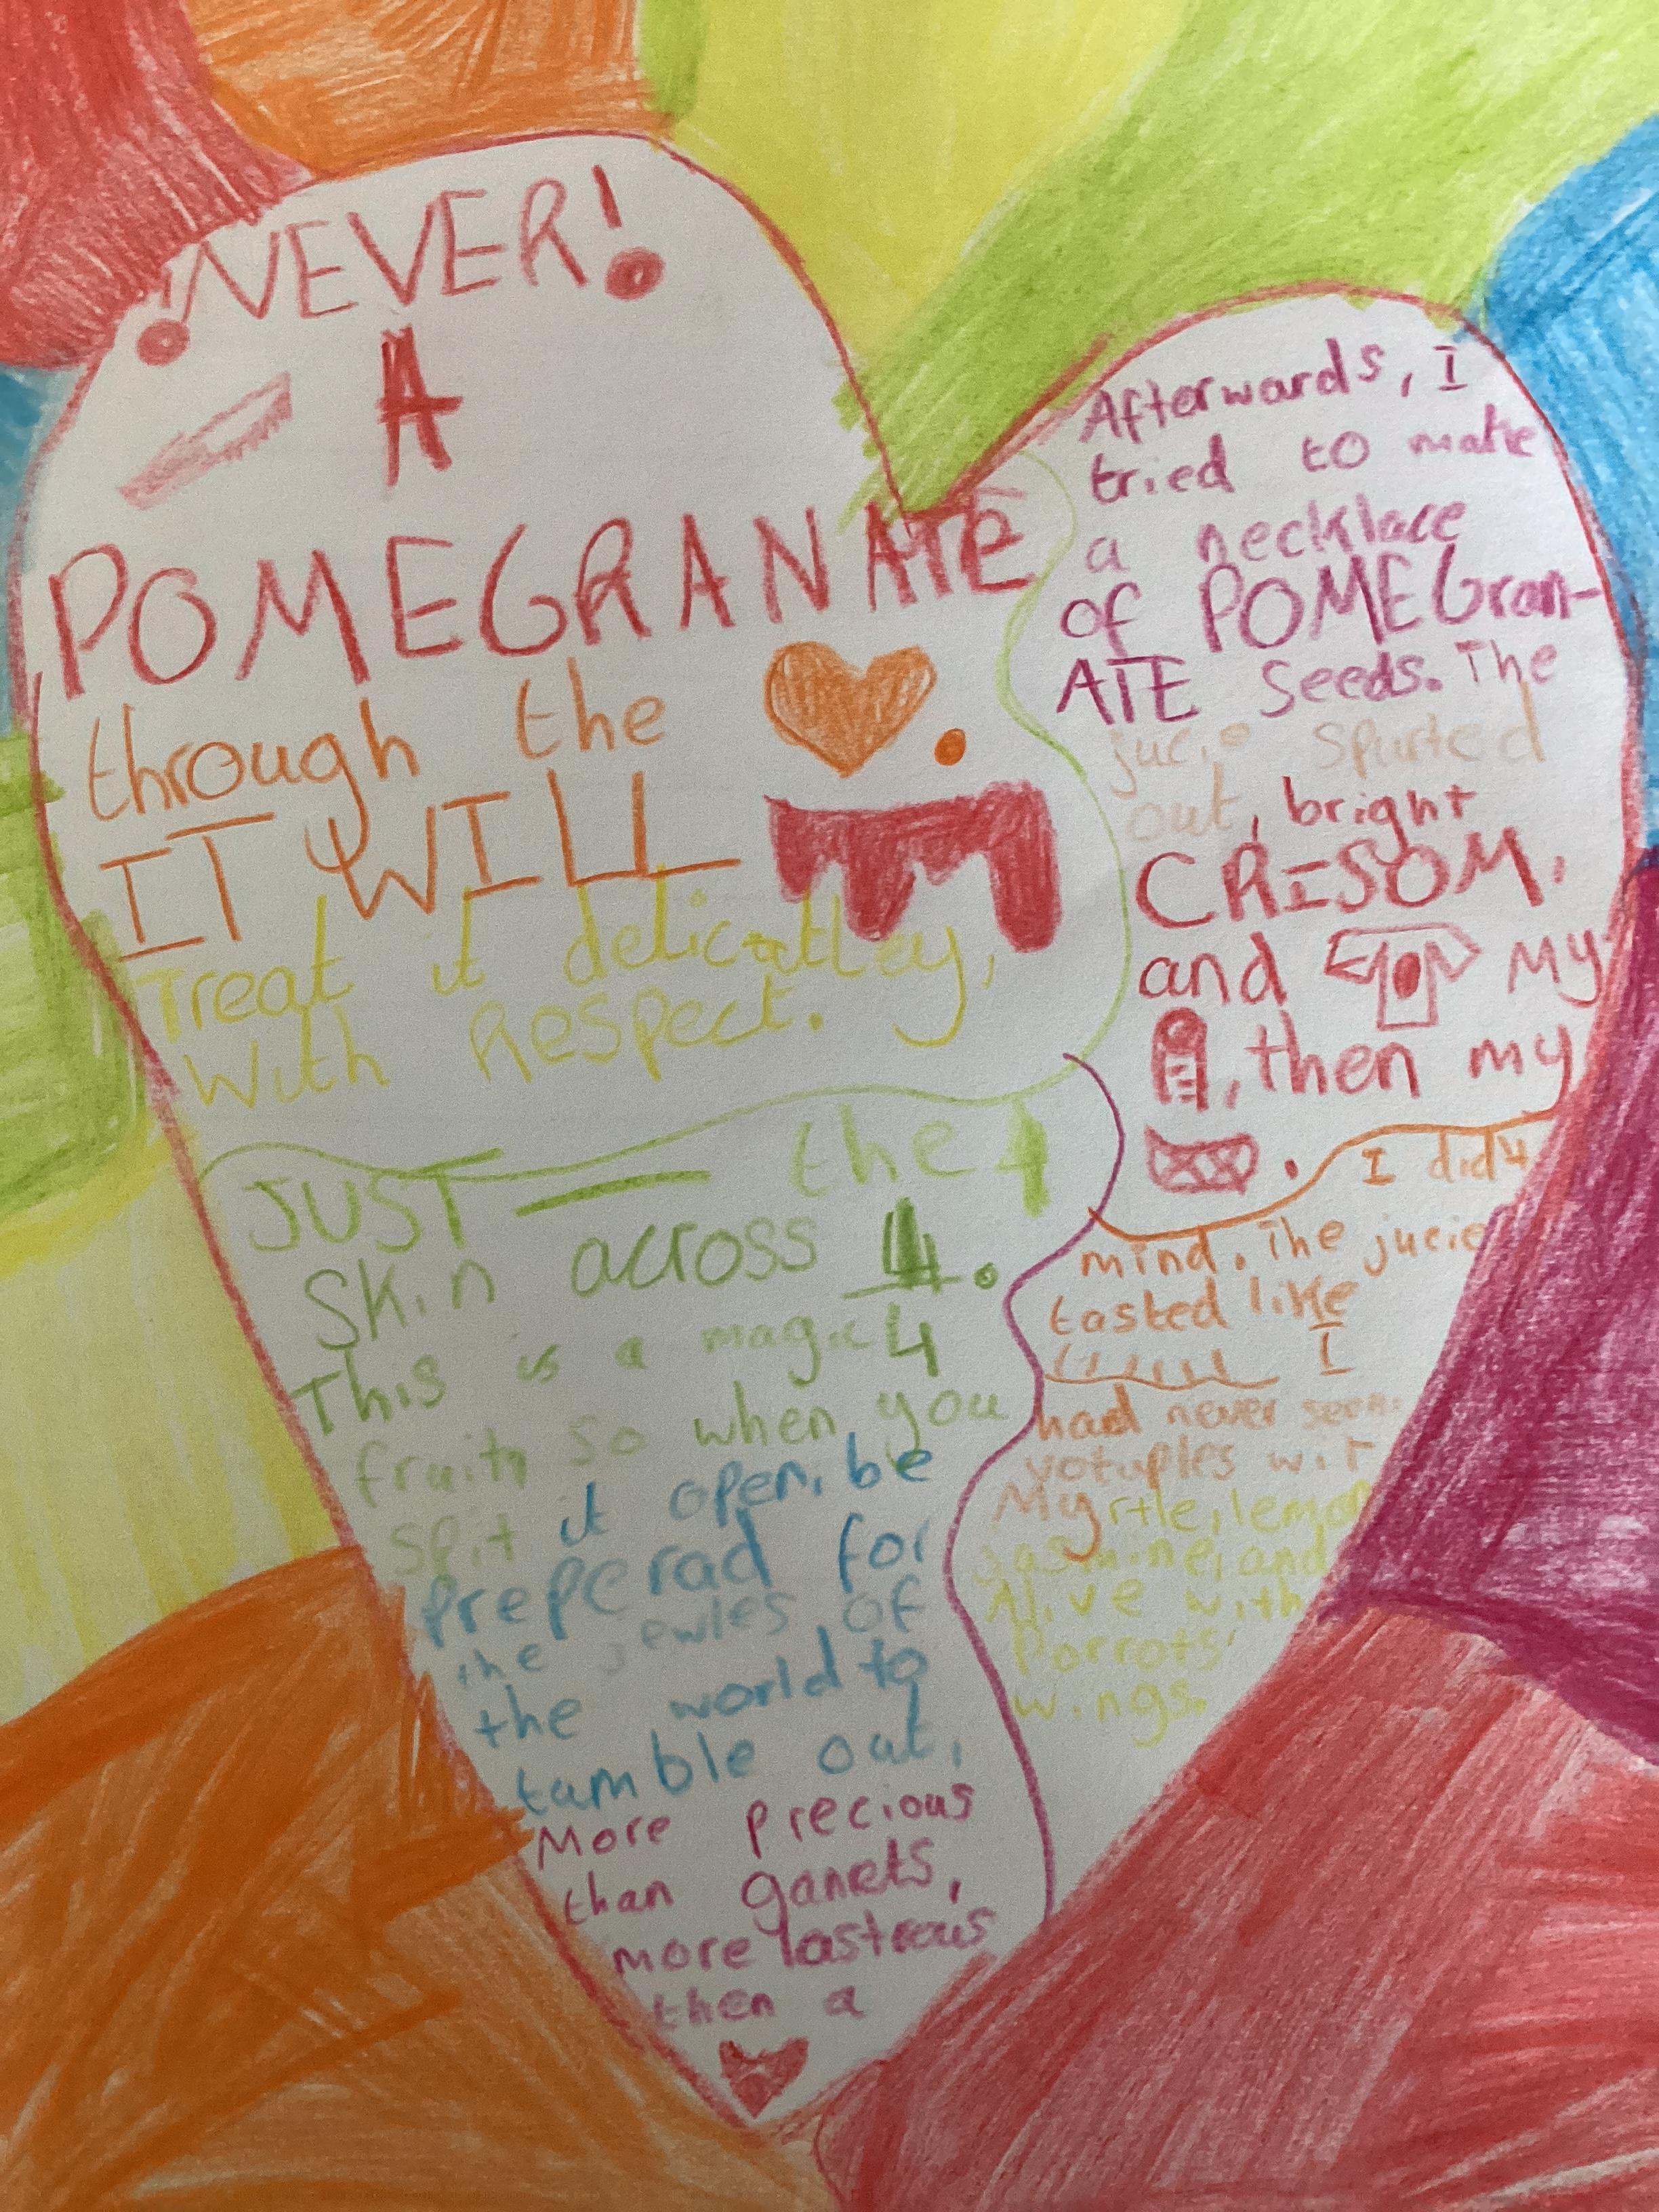 !NEVER!
A
POMEGRANATE
through the
IT WILL
Treat it delicatley,
With Respect.
JUST the
Skin across 4.
This is a magic 4
fruit, so when you
split it open, be
Preperad for
the jewles of
the world to
tumble out,
More precious
than garnets,
more lastrous
then a
Afterwards, I
tried to make
a necklace
of POMEGran-
ATE Seeds. The
jucie spurted
out, bright
CRISOM,
and my
, then my
.
I did
mind. The jucie
tasted like
I
had never seen
wit
Myrtle, lemon
Jasmine, and
Alive with
Porrots'
wings.